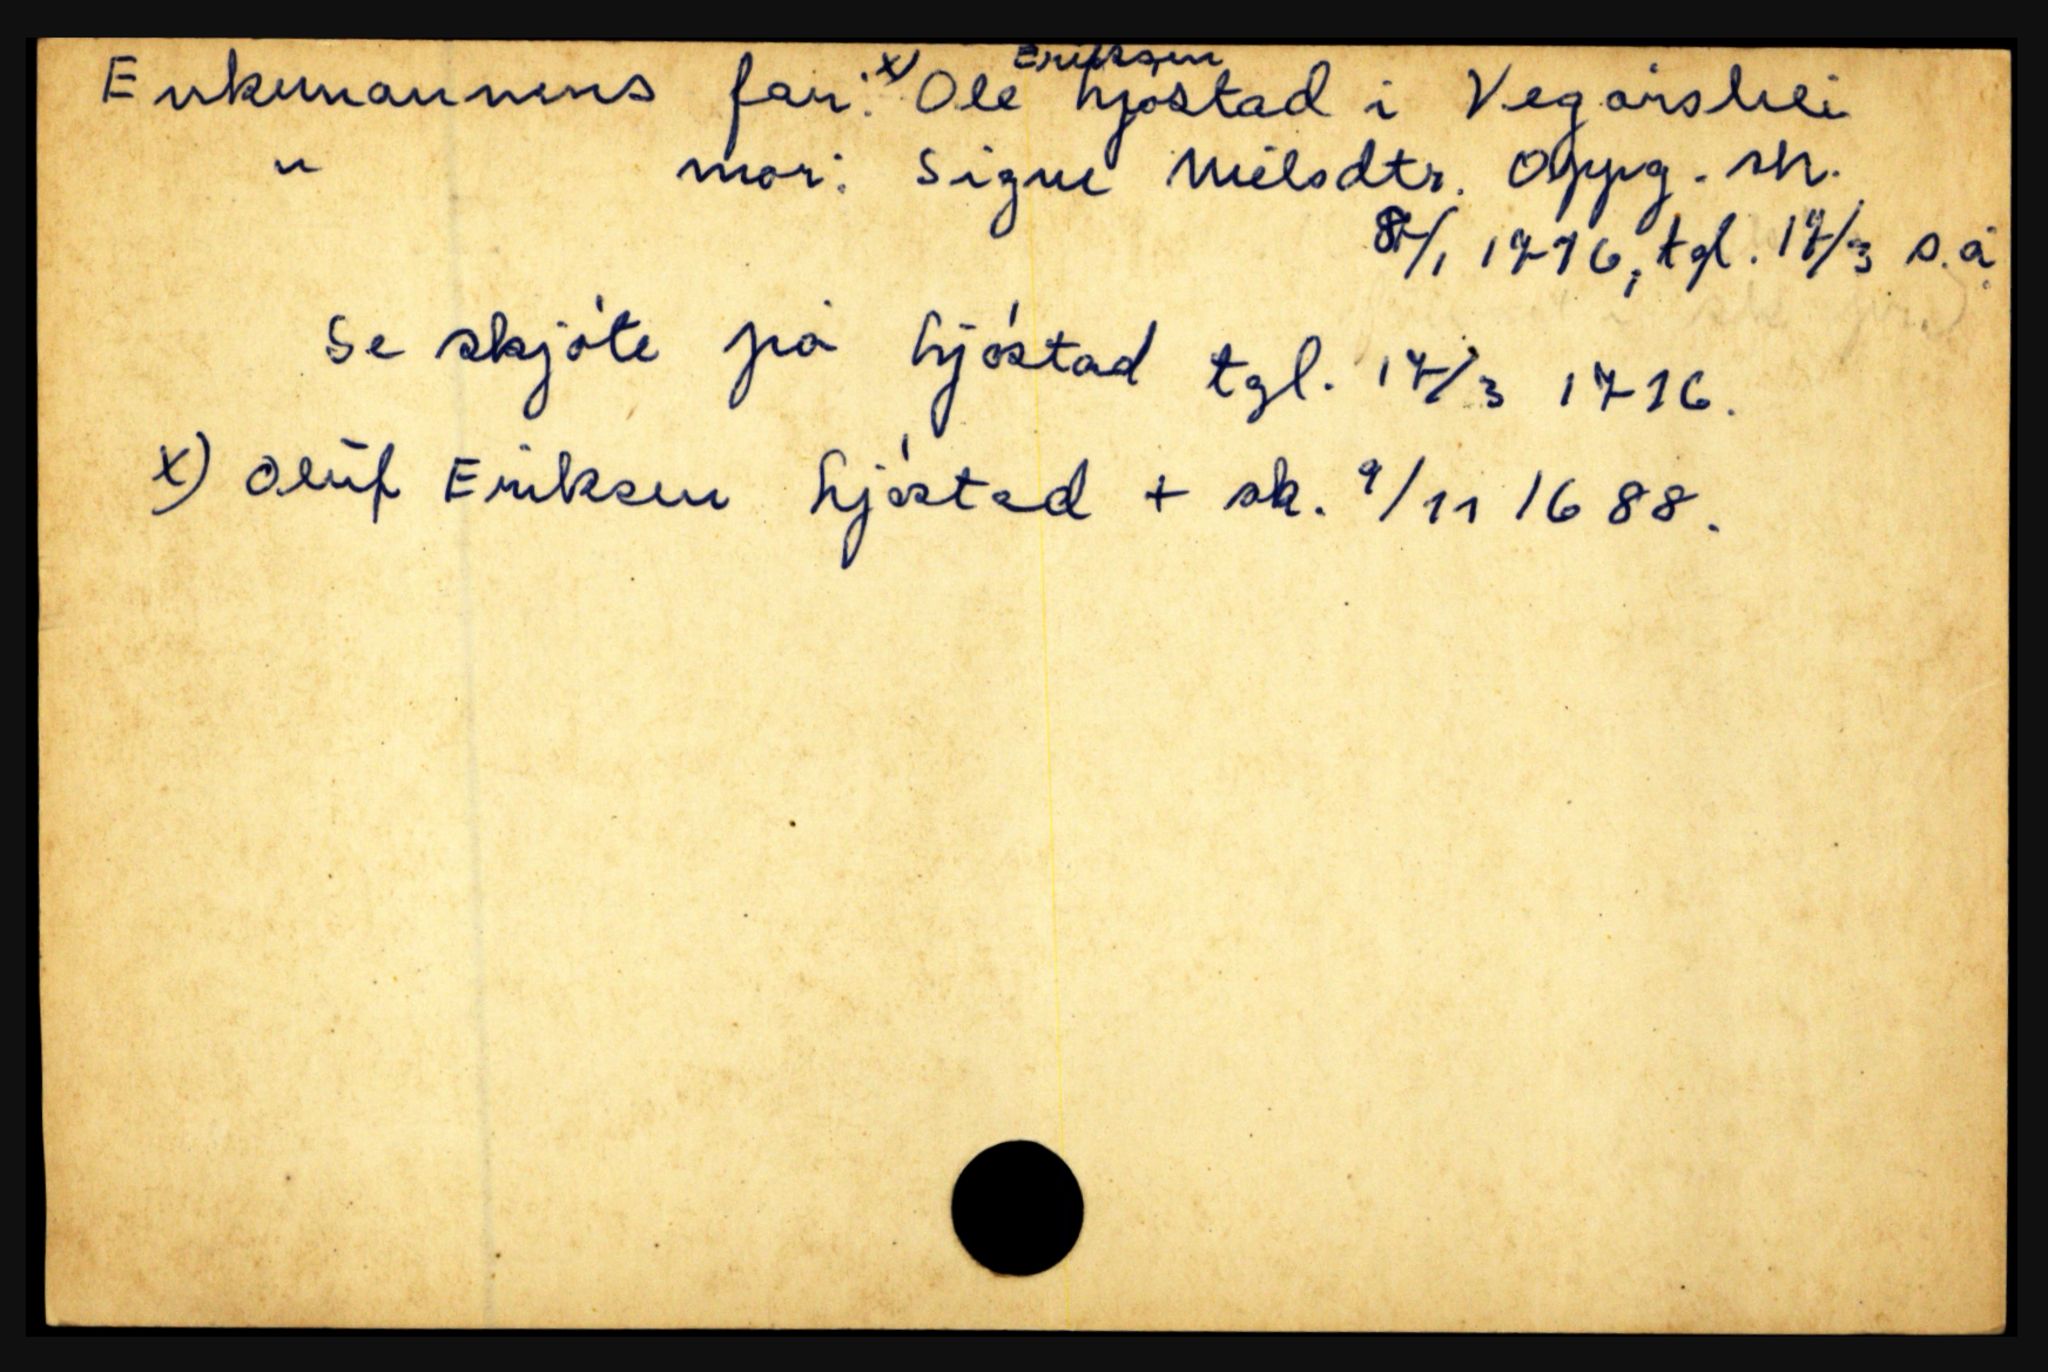 Enkemannens far: x) Ole Eriksen Ljøstad i Vegårshei
" mor: Signe Nielsdtr. Oppg. sk.
8/1 1716, tgl. 17/3 s.å.
Se skjøte på Ljøstad tgl. 17/3 1716.
x) Oluf Eriksen Ljøstad + sk. 9/11 1688.